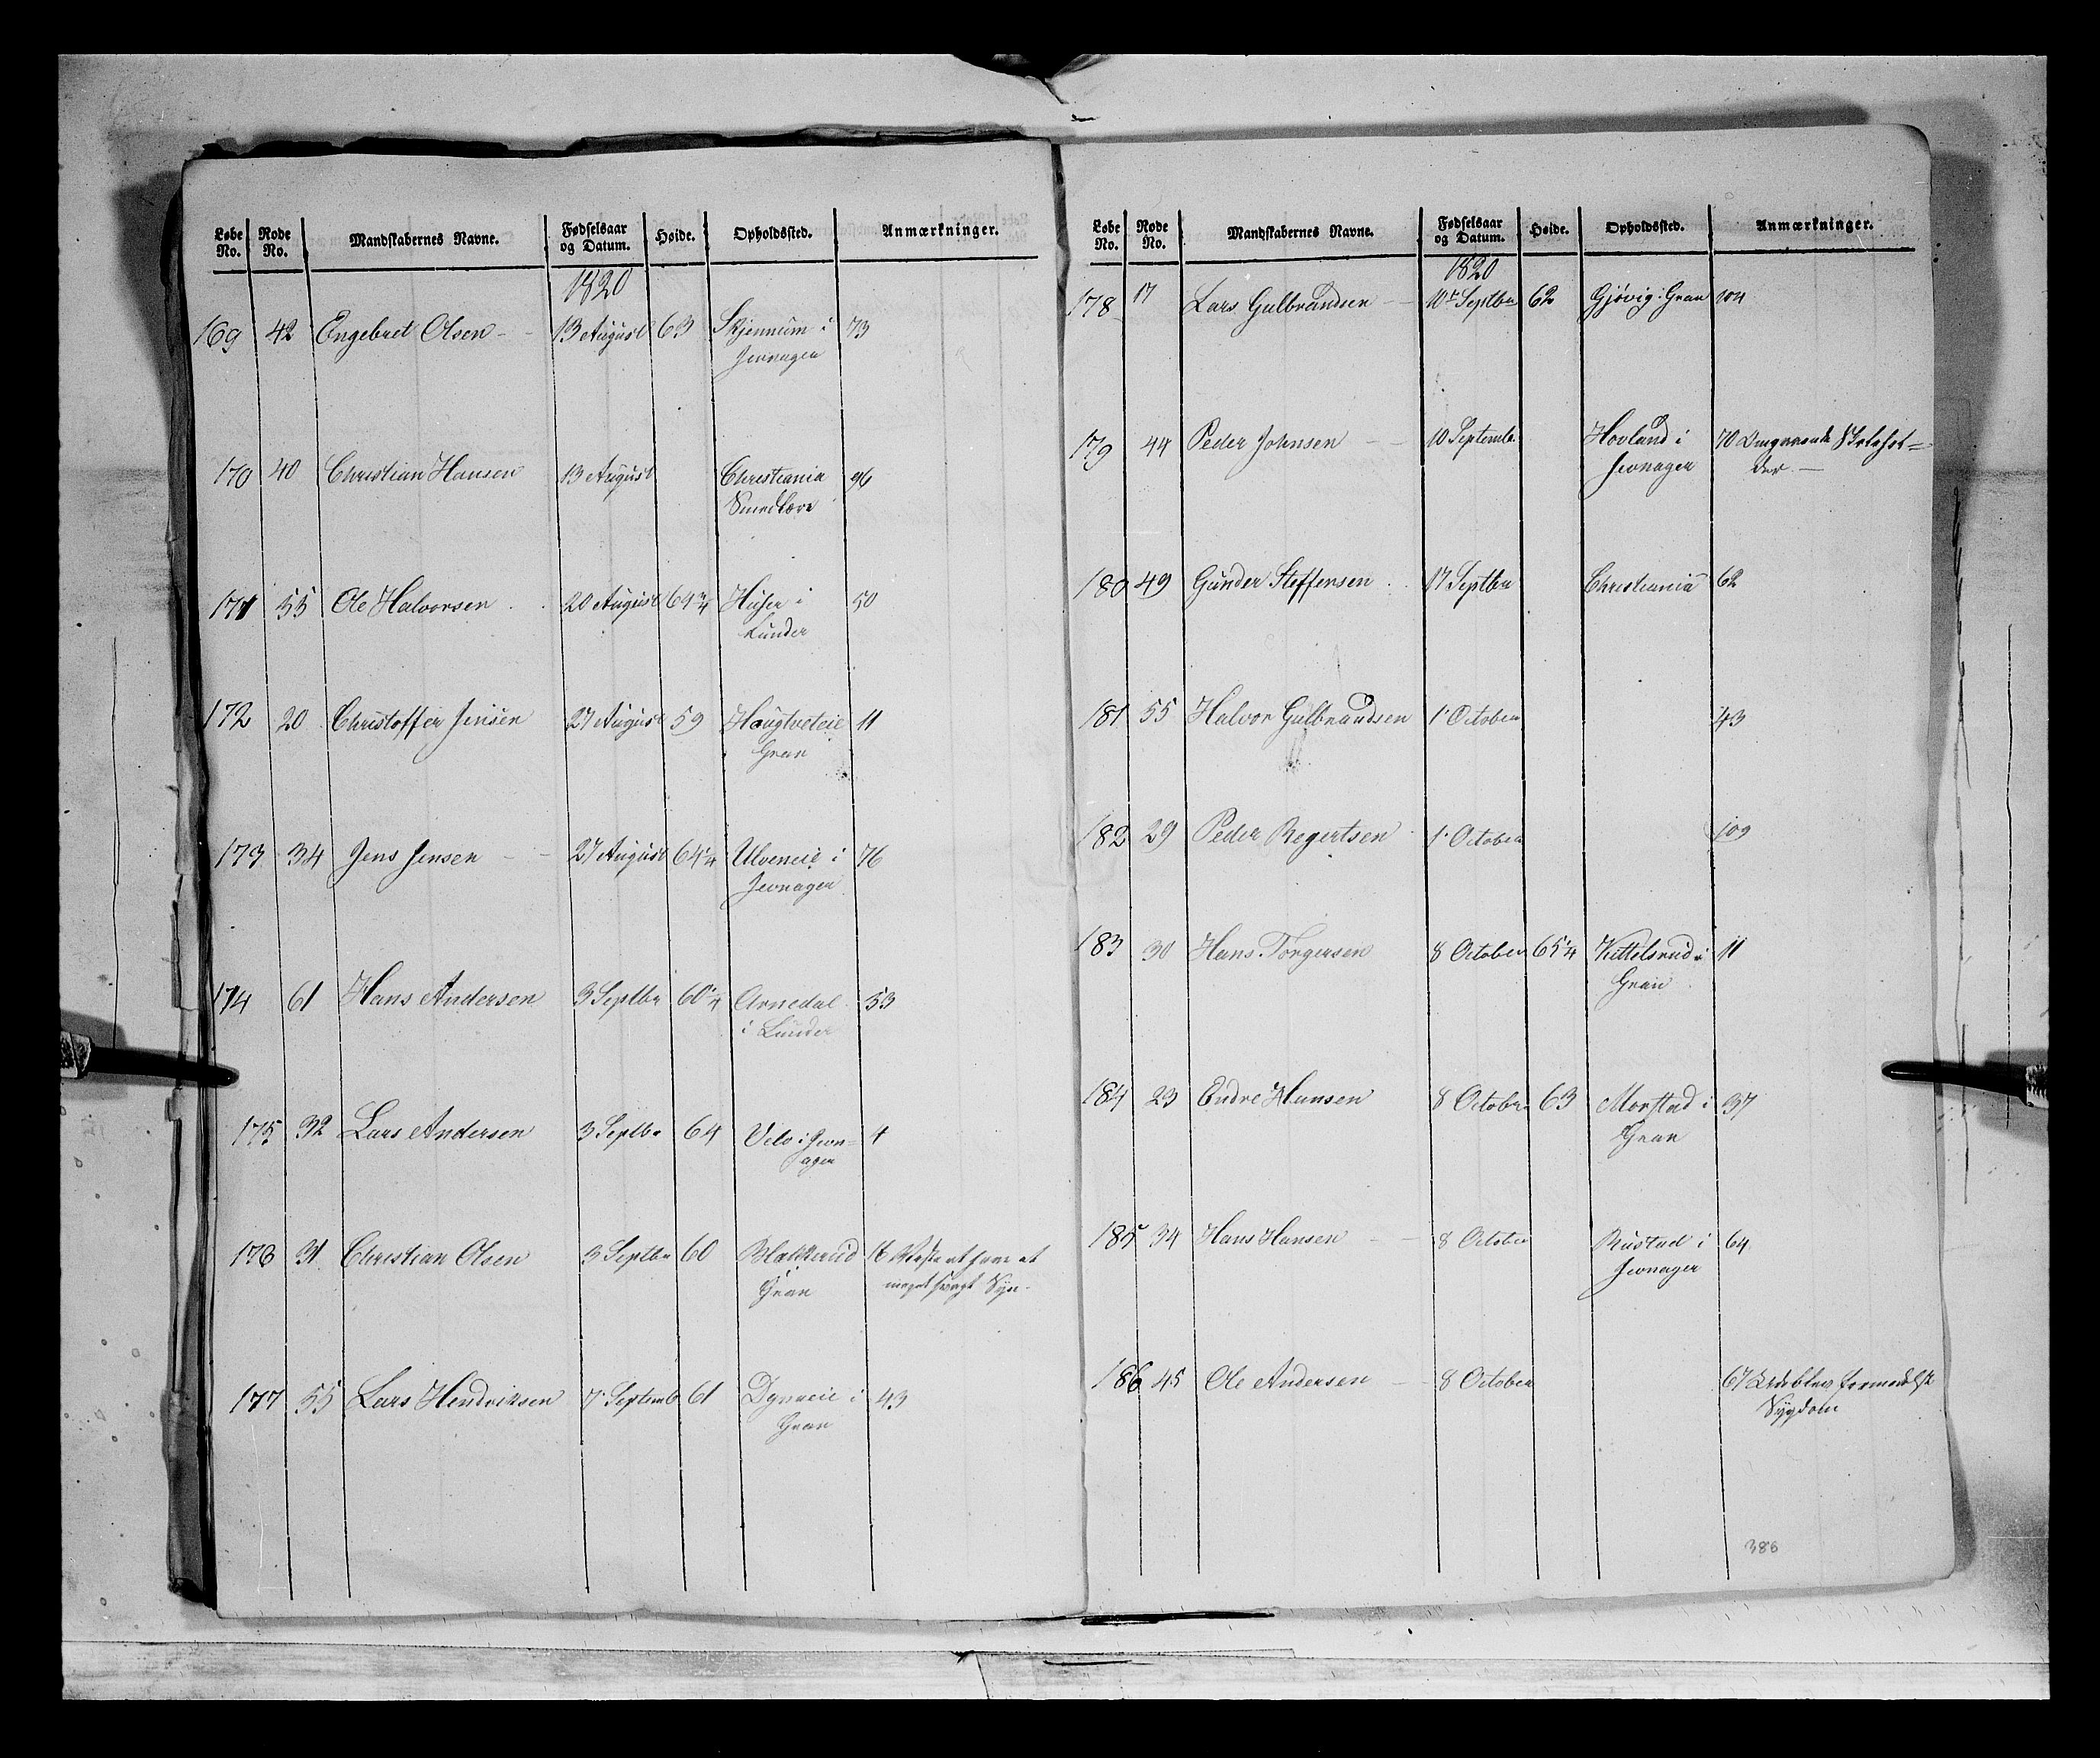 Løbe No. Rode No. Mandskabernes Navne. Fødselsaar og Datum. Høide. Opholdssted. Anmærkninger.
1820
169 42 Engebret Olsen - - 13 August 63 Skjennum i 73
Jevnager
170 40 Christian Hansen 13 August Christiania 96
171 55 Ole Halvorsen 20 August 64 3/4 Huser i 50
Lunder
172 20 Christoffer Jensen 27 August 59 Haugtveteie 11
Gran
173 34 Jens Jensen - - 27 August 64 1/4 Ulveneie i 76
Jevnager
174 61 Hans Andersen 3 Septbr 60 1/4 Arnedal 53
i Lunder
175 32 Lars Andersen 3 Septbr 64 Velo i Jevn= 4
ager
176 31 Christian Olsen 3 Septbr 60 Blakkerud 16 at have et
Gran meget svagt Syn.
177 55 Lars Hendriksen 7 Septemb 61 Dyneeie i 43
Gran
Løbe No. Rode No. Mandskabernes Navne. Fødselsaar og Datum. Høide. Opholdssted. Anmærkninger.
1820
178 17 Lars Gulbrandsen - - 10 Septbr 62 Gjøvig i Gran 104
179 44 Peder Johnsen - - 10 Septemb. Hovland i 70 Omgaaende Skolehol=
Jevnager der -
180 49 Gunder Steffensen 17 Septbr Christiania 62
181 55 Halvor Gulbrandsen 1 October 43
182 29 Peder Regertsen 1 October 109
183 30 Hans Torgersen 8 October 65 1/4 Kittelsrud i 11
Gran
184 23 Endre Hansen 8 Octobr 63 Morstad i 37
Gran
185 34 Hans Hansen - - 8 October Rustad i 64
Jevnager
186 45 Ole Andersen - 8 October 67 Udeblev formedelst
Sygdom
386